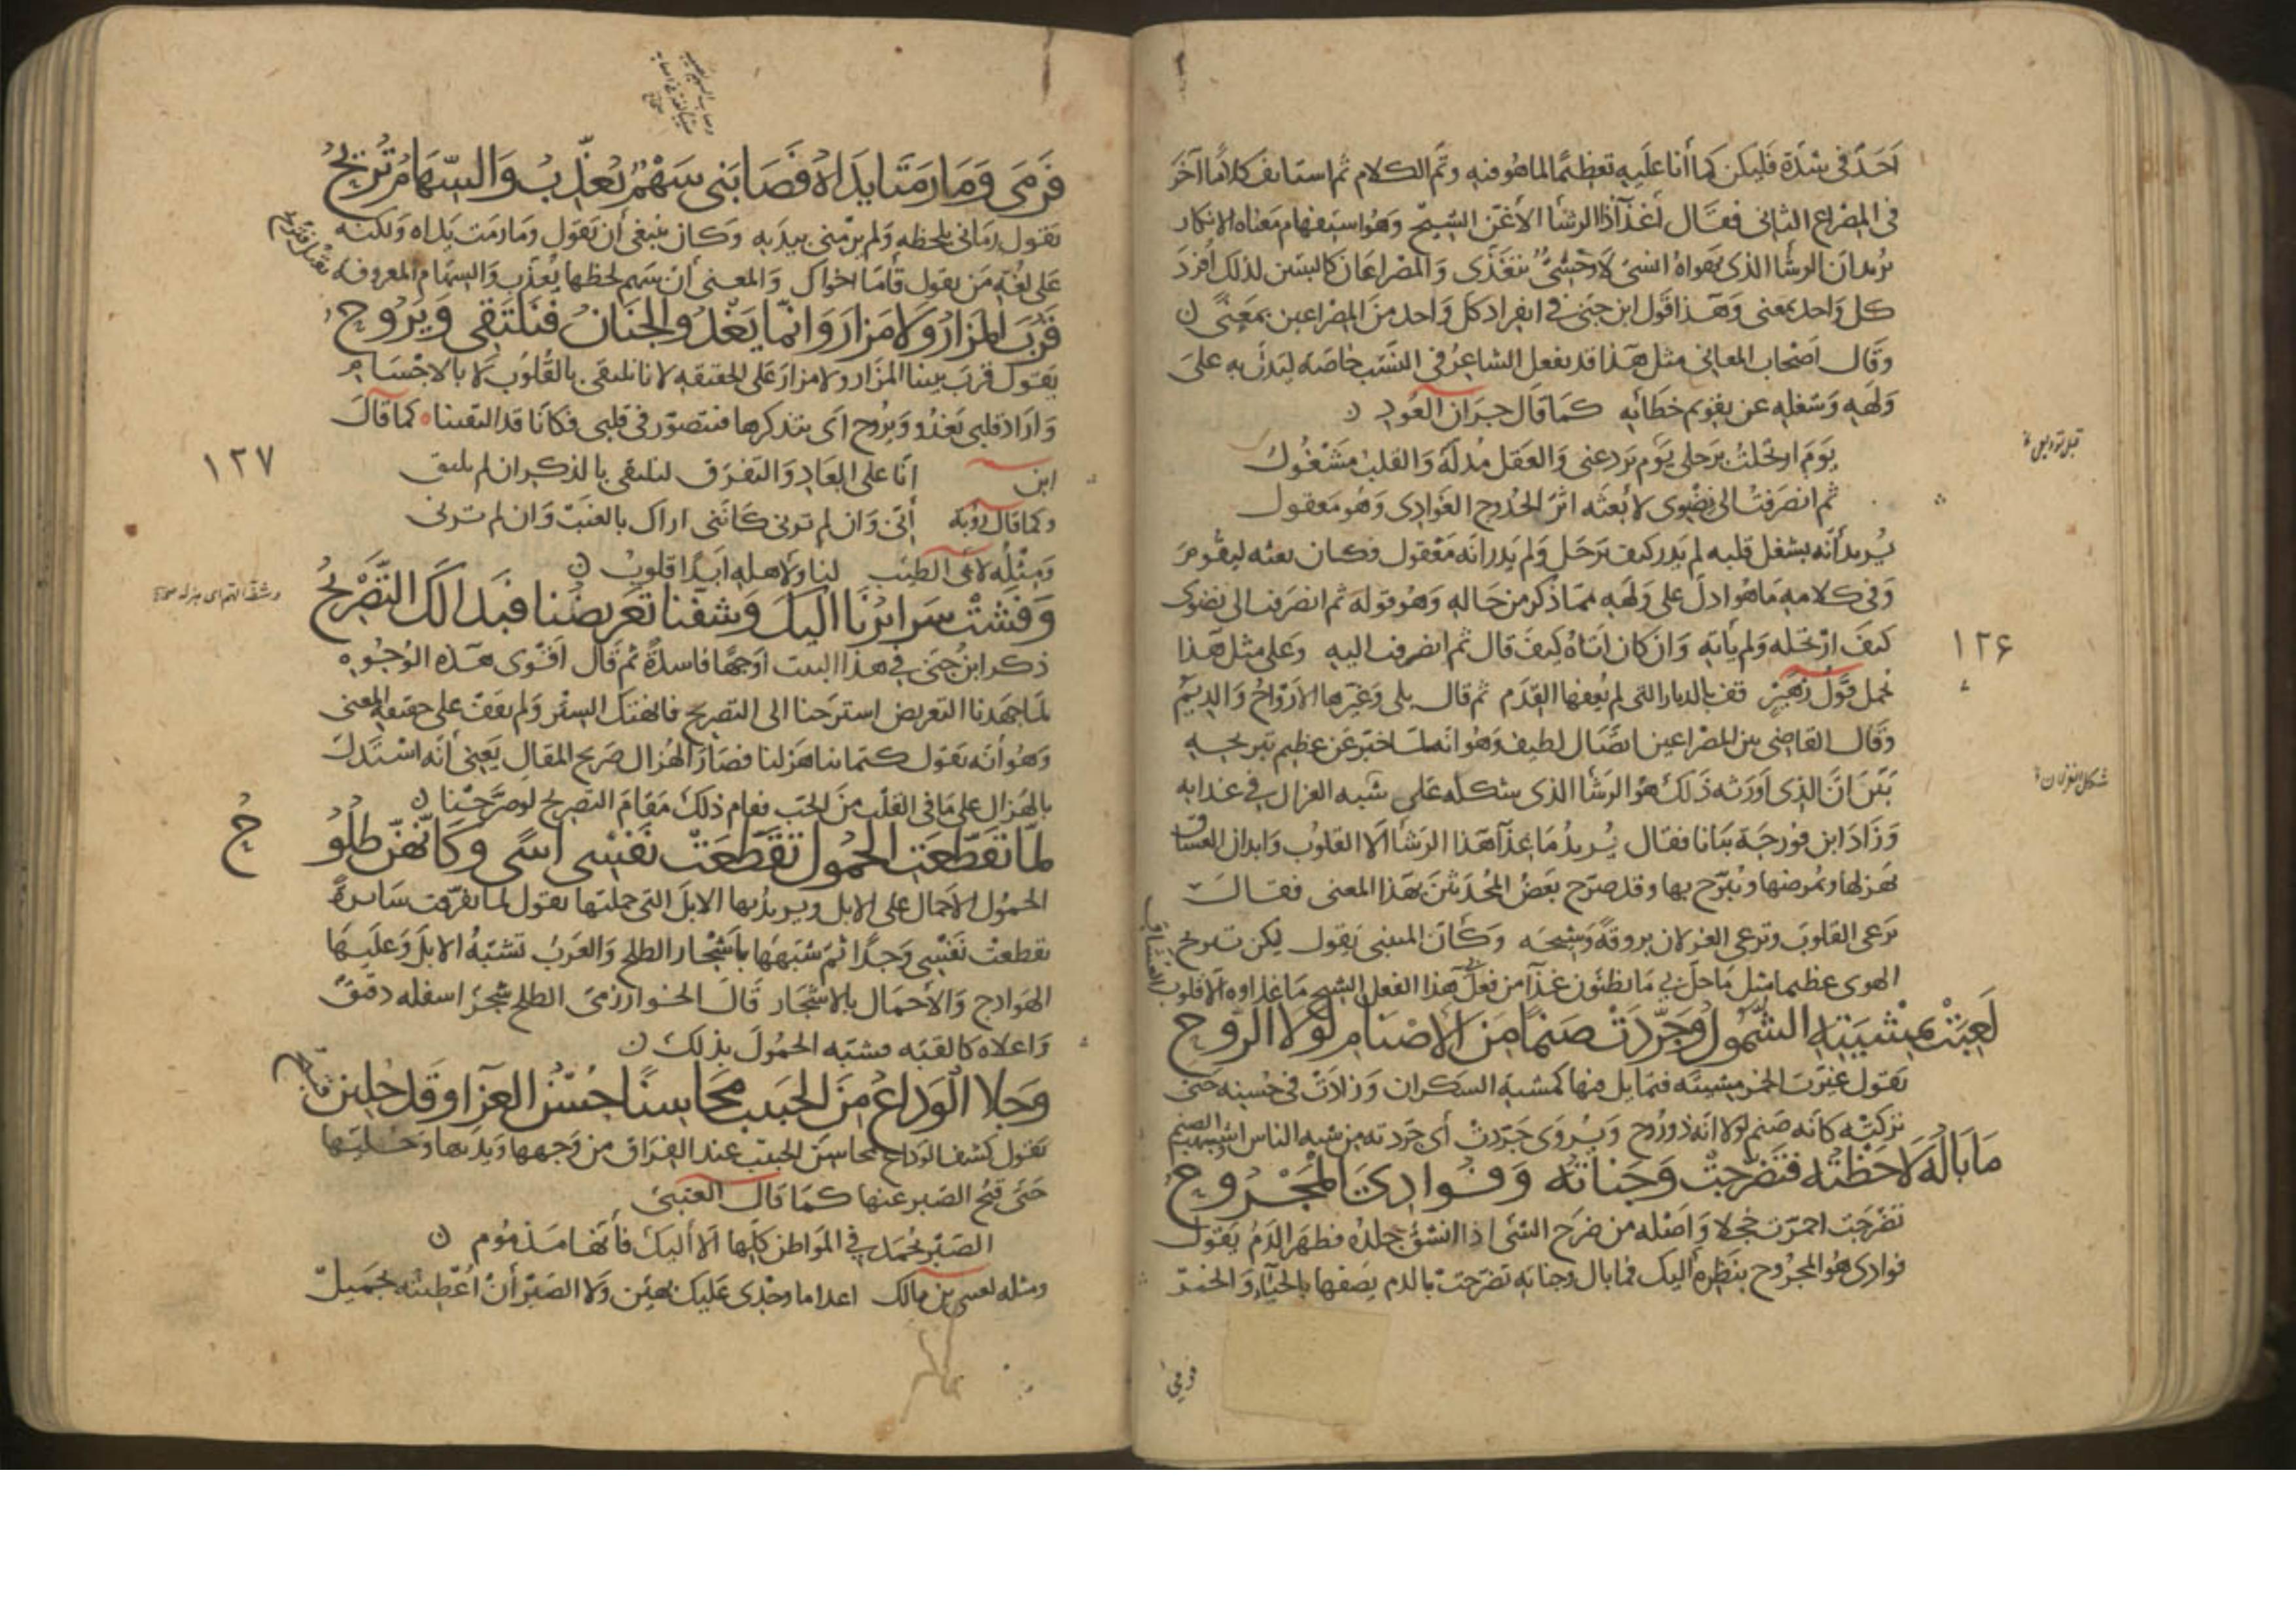 احد فى شدة فليكن كما أنا عليه تعظيما لما هو فيه وتم الكلام ثم استانف كلاما آخر
فى المصراع الثانى فقال أغذآ ذا الرشأ الأغن الشيح وهو استفهام معناه الانكار
يريد ان الرشا الذى يهواه انسى لا وحشى يتغذى والمصراعان كالبيتين لذلك أفرد
كل واحد بمعنى وهذا قول ابن جنى فى انفراد كل واحد من المصراعين بمعنى
وقال اصحاب المعانى مثل هذا قد يفعل الشاعر فى النسيب خاصة ليدل به على
ولهه وشغله عن تقويم خطأيه كما قال جران العود
يوم ارتحلت برحلى يوم بردعتى والعقل مدله والقلب مشغول
ثم انصرفت الى نضوى لابعثه اثر الحدوج الغوادى وهو معقول
يريد أنه بشغل قلبه لم يدر كيف يرحل ولم يدر انه معقول فكان يبعثه ليقوم
وفى كلامه ما هو ادل على ولهه مما ذكر من حاله وهو قوله ثم انصرفت الى نضوى
كيف ارتحله ولم يأته وان كان اتاه كيف قال ثم انصرفت اليه وعلى مثل هذا
١٢۶
يحمل قول زهير قف بالديار التى لم يعفها القدم ثم قال بلى وغيرها الارواح والديم
وقال القاضى بين المصراعين اتصال لطيف وهو انه لما خبر عن عظيم تبريحه
بين ان الذى اورثه ذلك هو الرشأ الذى شكله على شبه الغزال فى غذايه
وزاد ابن فورجة بيانا فقال يريد ما غذآ هذا الرشأ الا القلوب وابدان العشاق
يهزلها ويمرضها ويبرح بها وقد صرح بعض المحدثين بهذا المعنى فقال
يرعى القلوب وترعى الغزلان بروقة وشيحه وكأن المتنبى يقول ليكن تبريح
الهوى عظيما مثل ما حل بى ما تظنون غذآ من فعل بى هذا الفعل الشيح ما غذاوه الا قلوب
العشاق
لعبت بمشيته الشمول وجردت صنما من الاصنام لولا الروح
يقول غيرت الخمر مشيته فتمايل فيها كمشية السكران وزادت فى حسنه حتى
تركته كانه صنم لولا انه ذو روح ويروى جردت أى جردته من شبه الناس
ما باله لاحظته فتضرجت وجناته وفوادى المجروح
تضرجت احمرت خجلا واصله من ضرج الشئ اذا انشق جلده فظهر الدم يقول
فوادى هو المجروح بنظره اليك فما بال وجناته تضرجت بالدم يصفها بالحيآء والخفر
فرمى وما رمتا يداه فصابنى سهم يعذب والسهام تريح
يقول رمانى بلحظه ولم يرمنى بيديه وكان ينبغى أن يقول وما رمت يداه ولكنه
على لغة من يقول قاما اخواك والمعنى أن سهم لحظها يعذب والسهام المعروفة
تقتل فتريح
قرب المزار ولا مزار وانما يغدو الجنان فنلتقى ويروح
يقول قرب بيننا المزار ولا مزار على الحقيقه لانا نلتقى بالقلوب لا بالاجسام
واراد قلبى يغدو ويروح اى يتذكرها فتتصور فى قلبى فكانا قد التقينا كما قال
١٢٧
ابن انا على البعاد والتفرق لنلتقى بالذكر ان لم نلتق
وكما قال روبة أنى وان لم ترنى كاننى اراك بالغيب وان لم ترنى
ومثله لابى الطيب لنا ولاهله ابدا قلوب
وفشت سرايرنا اليك وشفنا تعريضنا فبدا لك التصريح
ذكر ابن جنى فى هذا البيت اوجها فاسدة ثم قال اقوى هذه الوجوه
لما جهدنا التعريض استرحنا الى التصريح فانهتك الستر ولم يقف على حقيقة المعنى
وهو أنه يقول كتماننا هزلنا فصار الهزال صريح المقال يعنى أنه استدل
بالهزال على ما فى القلب من الحب فقام ذلك مقام التصريح لو صرحنا
لما تقطعت الحمول تقطعت نفسى اسى وكأنهن طلوح
الحمول الاحمال على الابل ويريد بها الابل التى حملتها يقول لما تفرقت سايرة
تقطعت نفسى وجدا ثم شبهها باشجار الطلح والعرب تشبه الابل وعليها
الهوادج والأحمال بالاشجار قال الخوارزمى الطلح شجر اسفله دقيق
واعلاه كالقبه فشبه الحمول بذلك
وجلا الوداع من الحبيب محاسنا حسن العزآ وقد جلين قبيح
يقول كشف الوداع محاسن الحبيب عند الفراق من وجهها ويديها
حتى قبح الصبر عنها كما قال العتبى
الصبر يحمد فى المواطن كلها الا أليك فأنها مذموم
ومثله وجدى عليك بهين ولا الصبر أن أعطيته بجميل